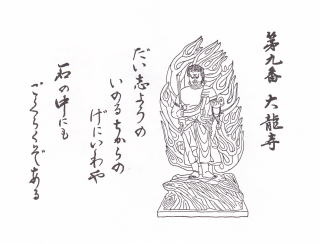 第九番 大龍寺
だい志よりの
いのるちからの
げにいわや
石の中にも
ごくらくぞある